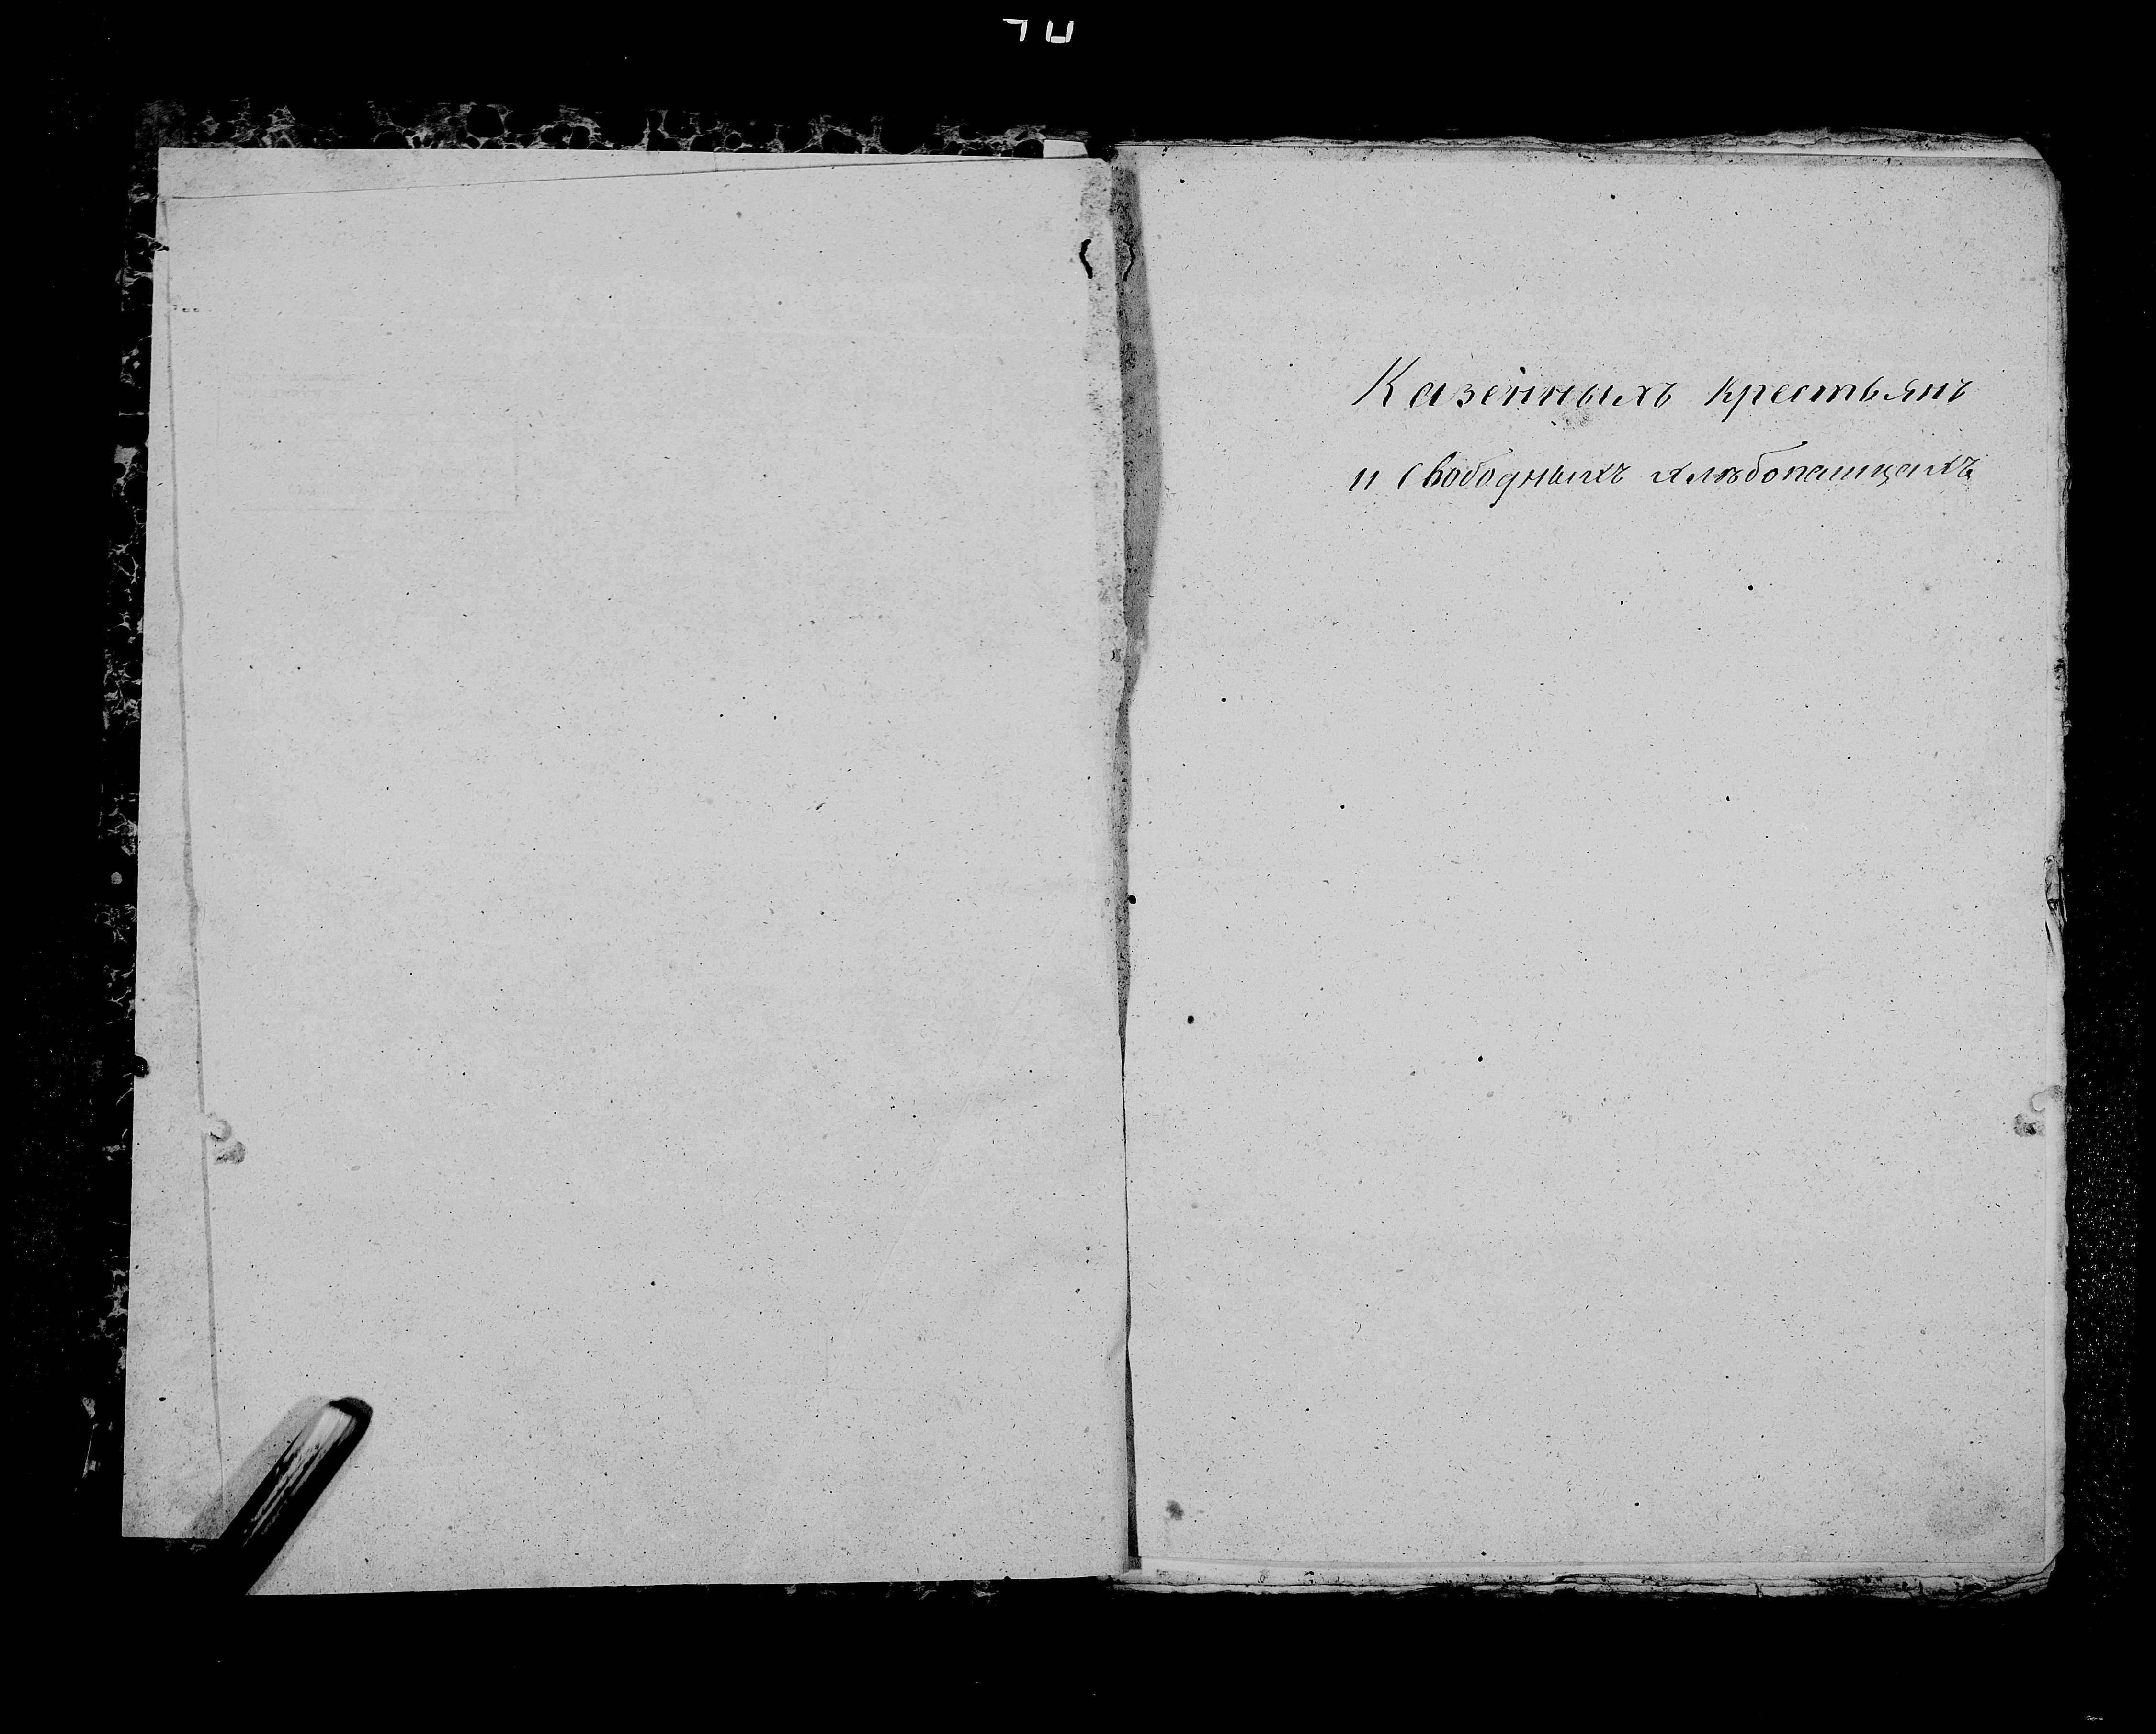 Казенныхъ крестьянъ
и Свободныхъ хлѣбопашцахъ